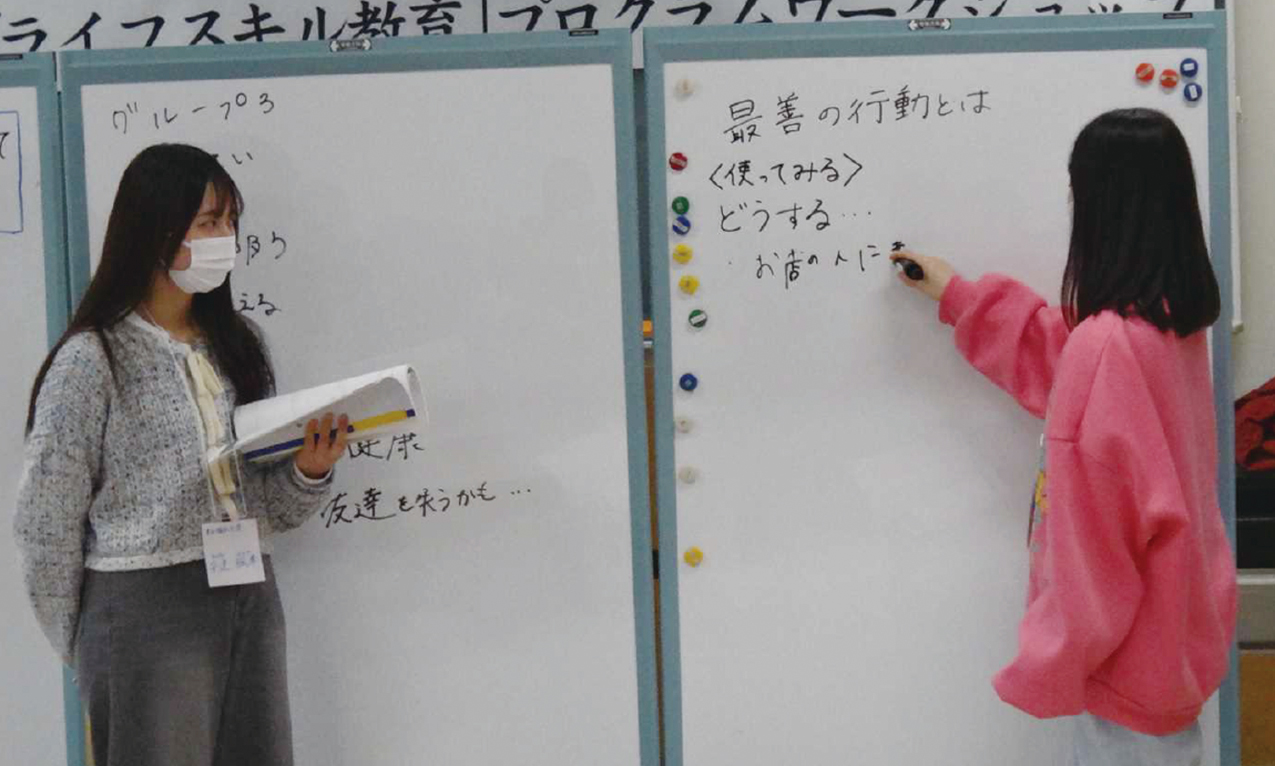 ライフスキル教育|プログラムワークショップ
て
グループ3
い
える
健康
友達を失うかも…
最善の行動とは
〈使ってみる〉
どうする…
・お店の人に